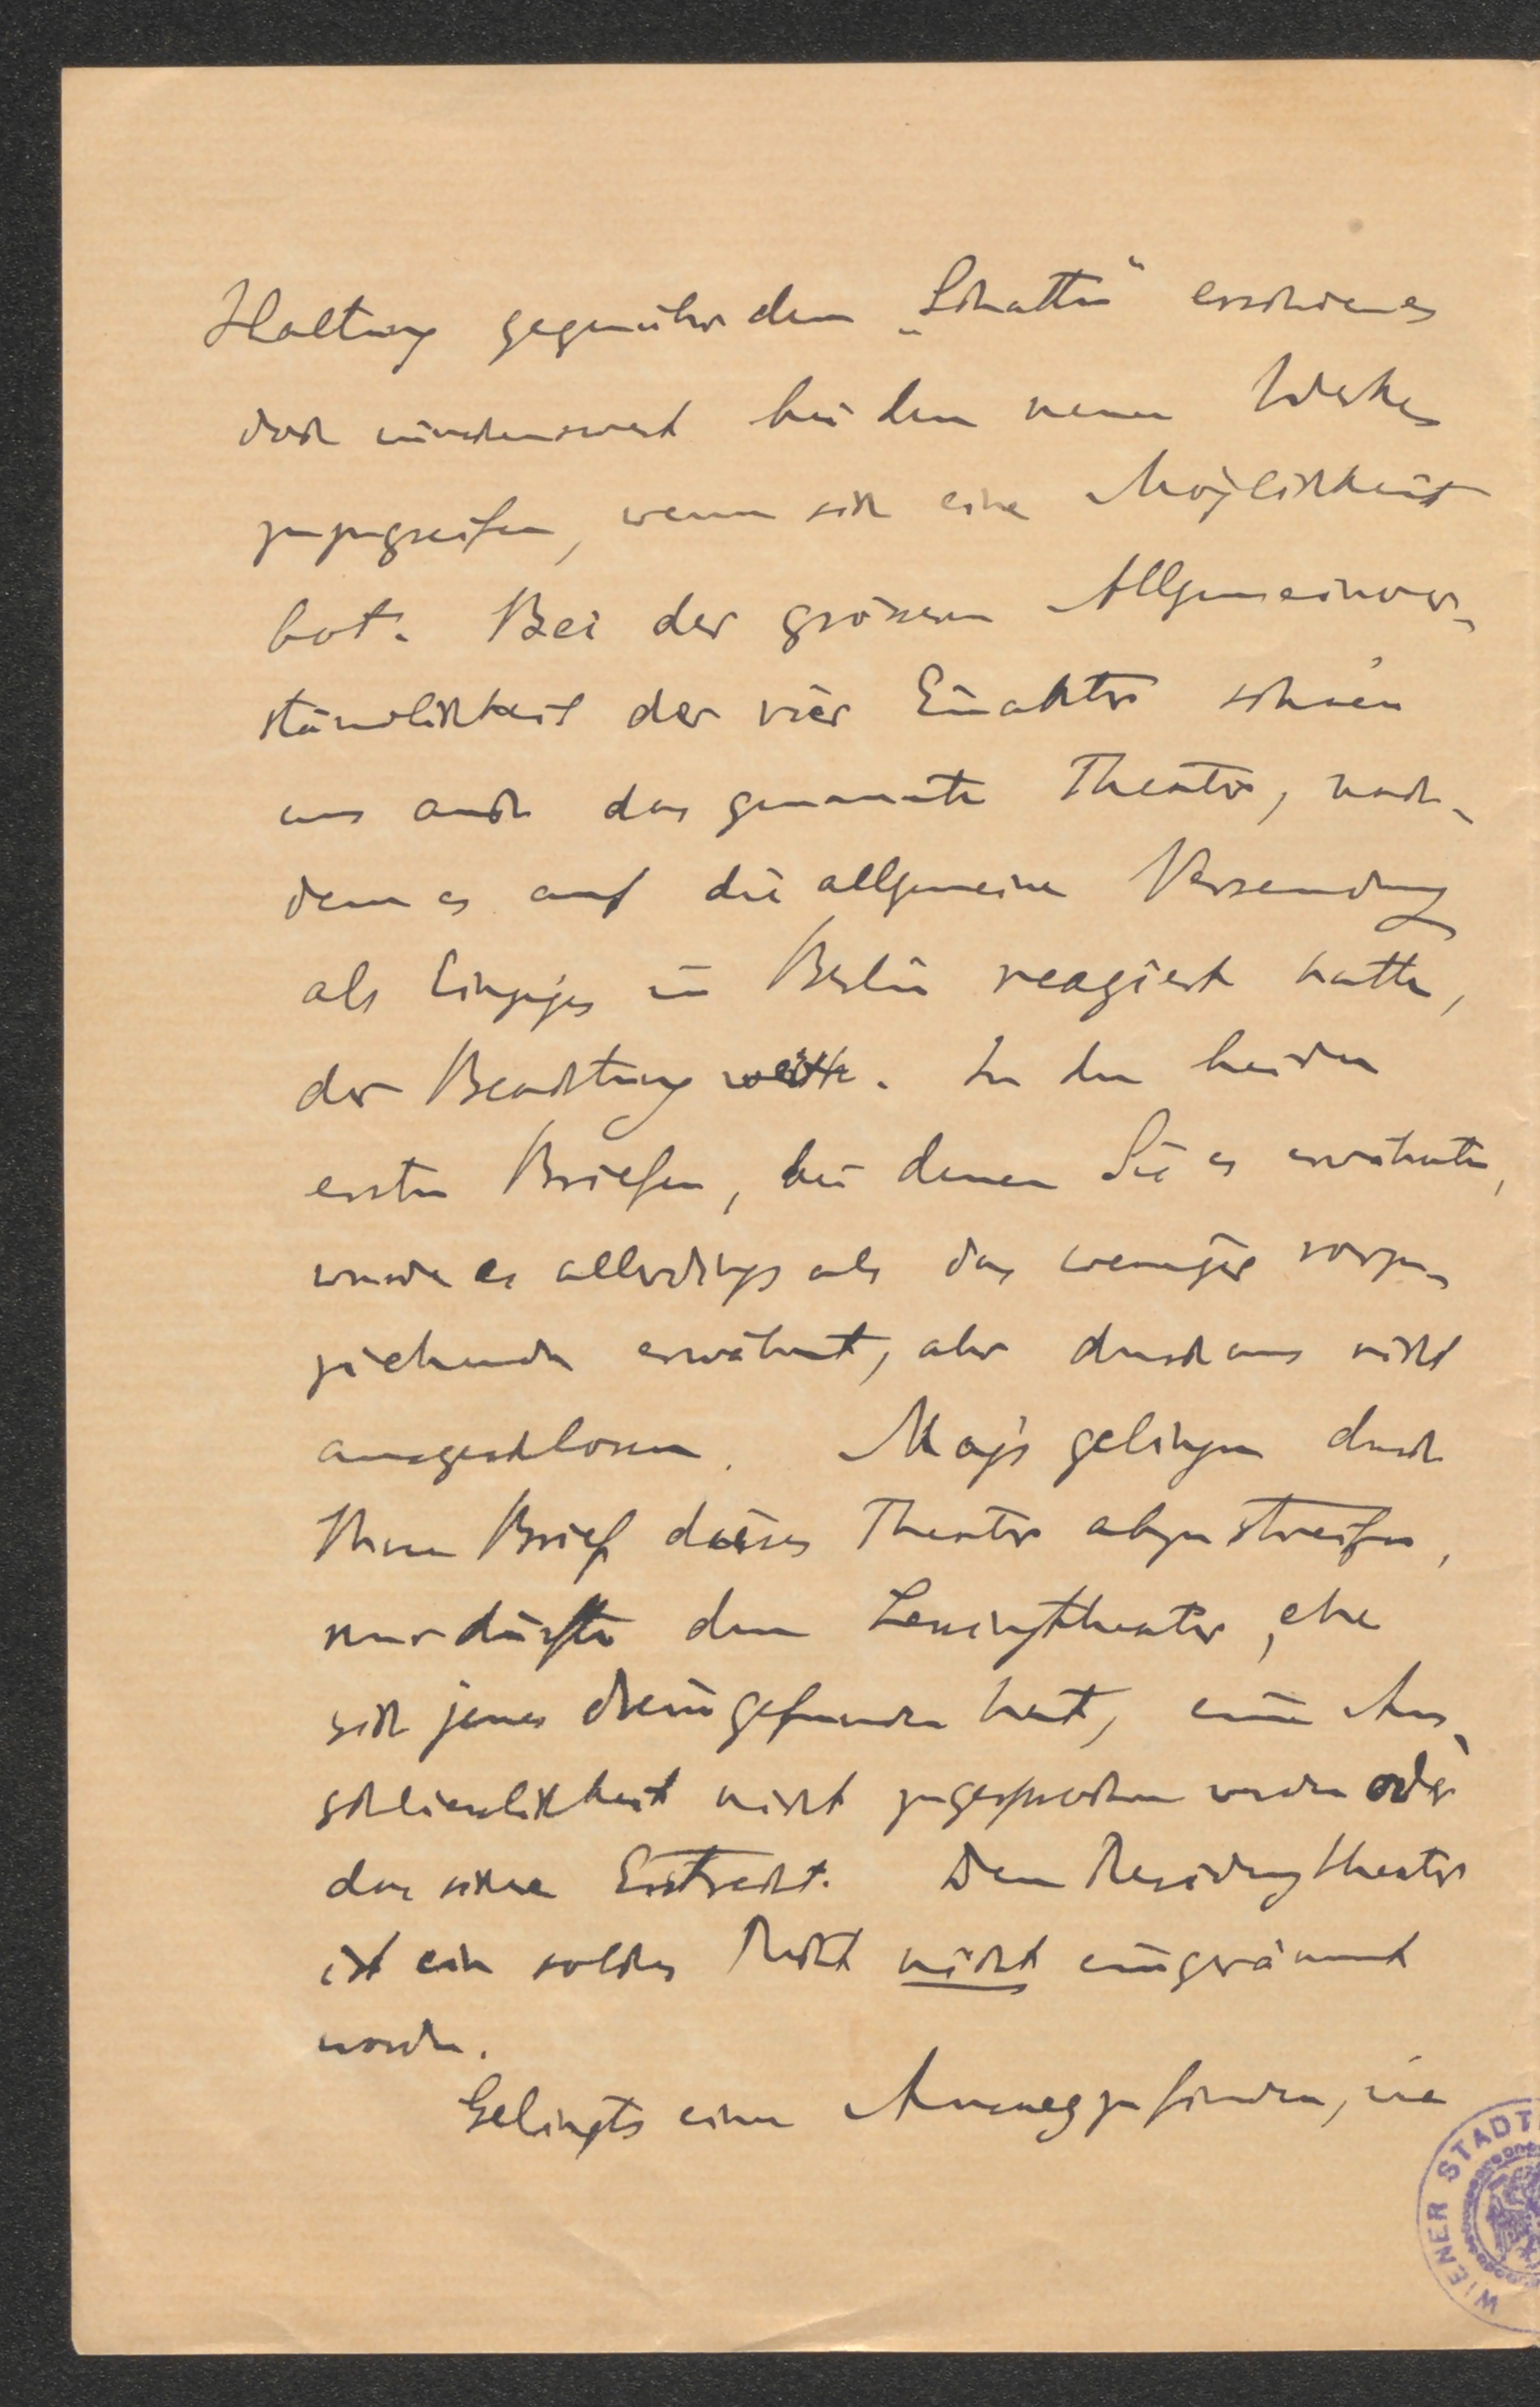 Haltung gegenüber dem „Schatten“ erschien es
doch wünschenswert bei dem neuen Werke
zuzugreifen, wenn sich eine Möglichkeit
bot. Bei der grössern Allgemeinver-
ständlichkeit der vier Einakter schien
uns auch das genannte Theater, nach-
dem es auf die allgemeine Versendung
als Einziges in Berlin reagiert hatte,
der Beachtung wert. In den beiden
ersten Briefen, bei denen Sie es erwähnten,
wurde es allerdings als das weniger vorzu-
ziehende erwähnt, aber durchaus nicht
ausgeschlossen. Mag's gelingen durch
Ihren Brief dieses Theater abzustreifen,
nur dürfte dem Lessingtheater, ehe
sich jenes dreingefunden hat, eine Aus-
schliesslichkeit nicht zugesprochen werden oder
das sichere Erstrecht. Dem Residenztheater
ist ein solches Recht nicht eingeräumt
worden.
Gelingts einen Ausweg zu finden, wie
WIENER STADT